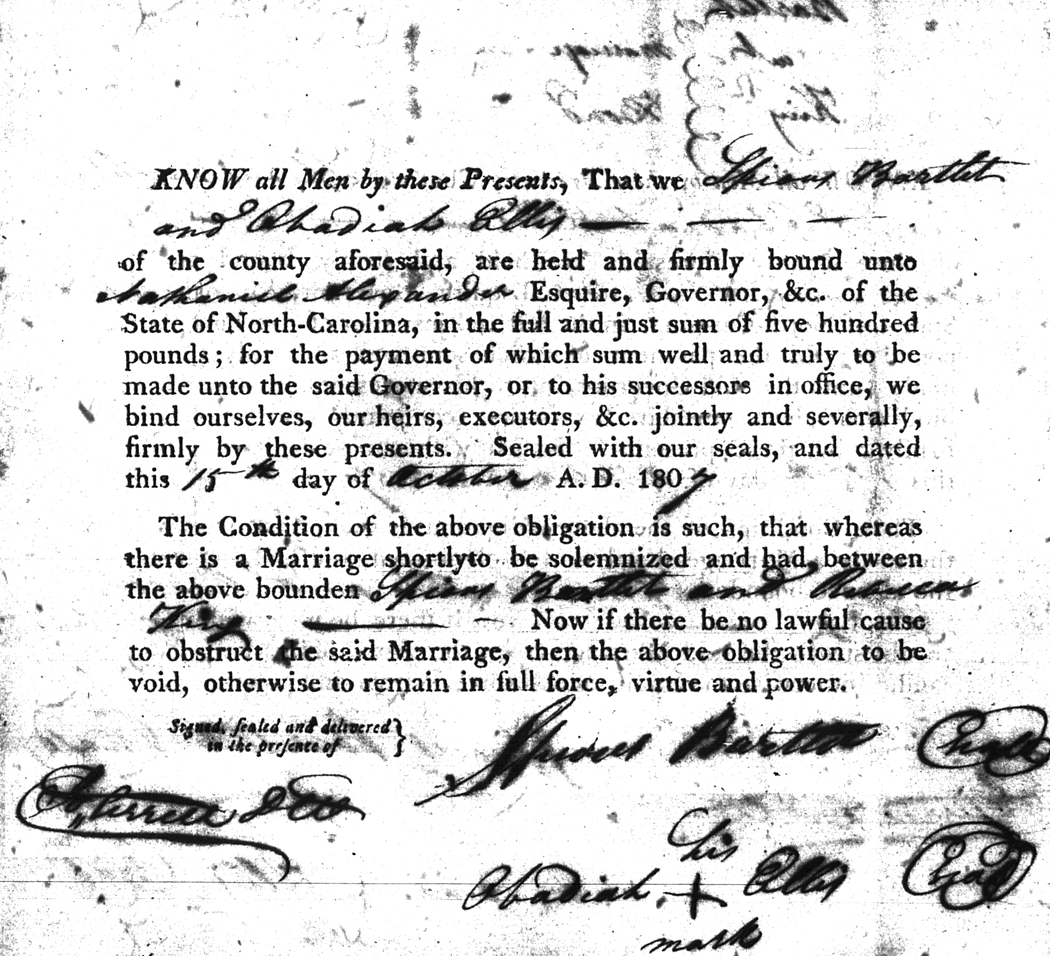 KNOW all Men by these Presents, That we Spicus Bartlet
and Obadiah Ellis
of the county aforesaid, are held and firmly bound unto
Nathaniel Alexander Esquire, Governor, &c. of the
State of North-Carolina, in the full and just sum of five hundred
pounds; for the payment of which sum well and truly to be
made unto the said Governor, or to his successors in office, we
bind ourselves, our heirs, executors, &c. jointly and severally,
firmly by these presents. Sealed with our seals, and dated
this 15th day of October A. D. 1807
The Condition of the above obligation is such, that whereas
there is a Marriage shortly to be solemnized and had between
the above bounden Spicus Bartlet and Rebecca
King Now if there be no lawful cause
to obstruct the said Marriage, then the above obligation to be
void, otherwise to remain in full force, virtue and power.
Signed, sealed and delivered
in the presence of
Bartlet
Obadiah his + Ellis
mark